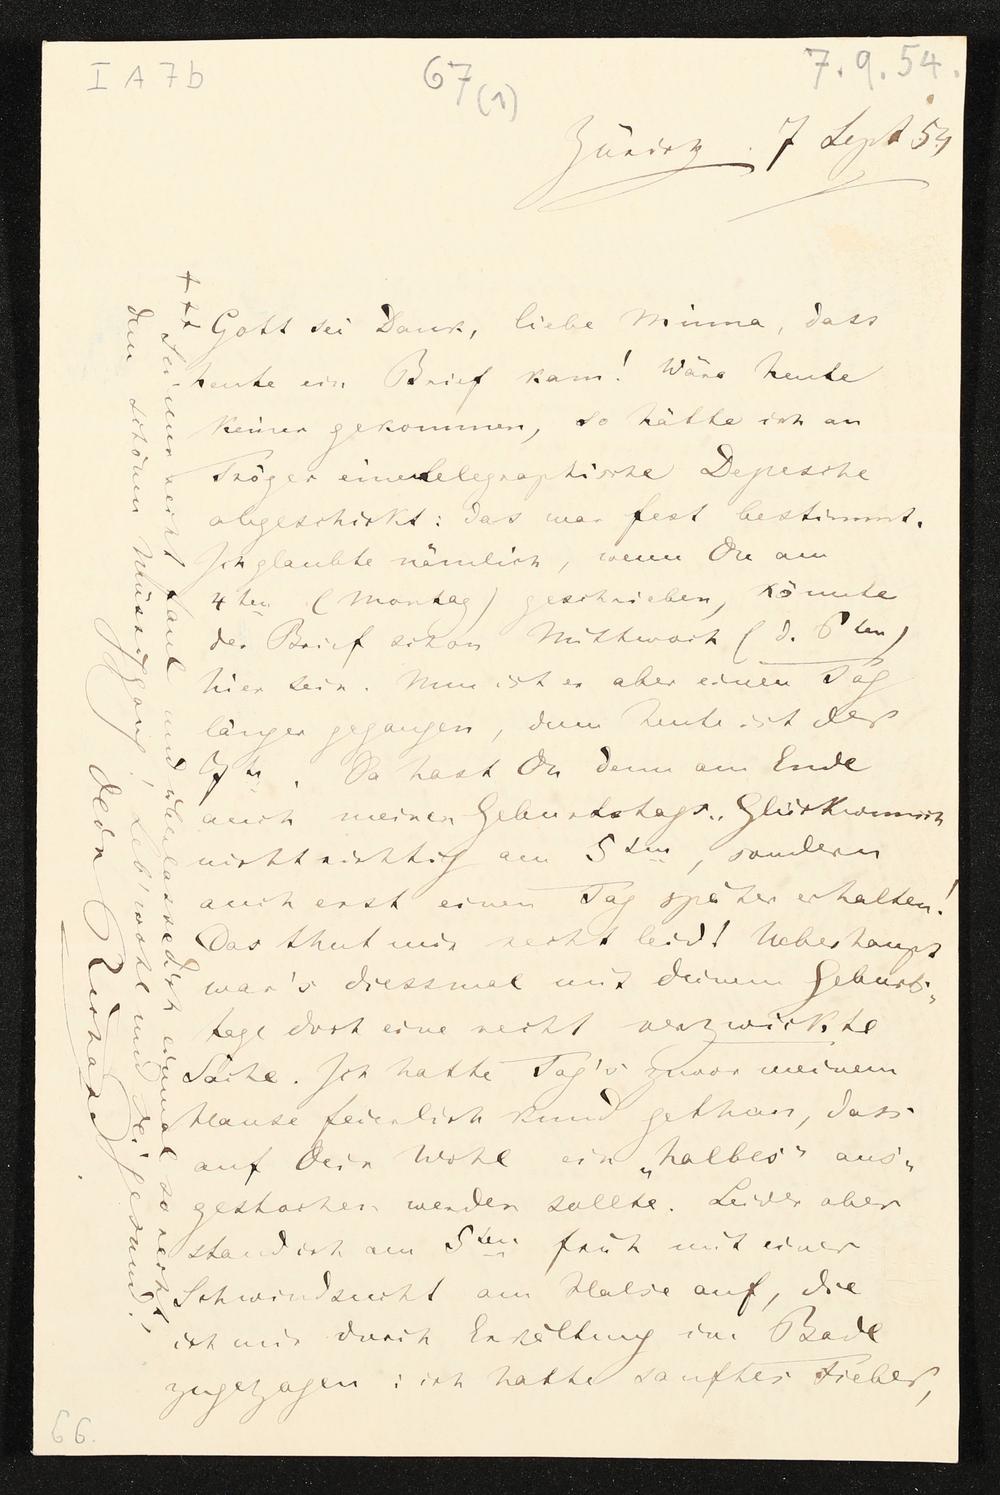 I A 7 b
67 (1)
7. 9. 54.
Zürich. 7 Sept 54
Gott sei Dank, liebe Minna, dass
heute ein Brief kam! Wäre heute
keiner gekommen, so hätte ich an
Tröger eine telegraphische Depesche
abgeschickt: das war fest bestimmt.
Ich glaubte nämlich, wenn Du am
4ten (Montag) geschrieben, könnte
der Brief schon Mittwoch (d. 6ten)
hier sein. Nun ist er aber einen Tag
länger gegangen, denn heute ist der
7te. So hast Du denn am Ende
auch meinen Geburtstags-Glückwunsch
nicht richtig am 5ten, sondern
auch erst einen Tag später erhalten!
Das thut mir recht leid! Ueberhaupt
war's diessmal mit deinem Geburts-
tage doch eine recht verzwickte
Sache. Ich hatte Tag's zuvor meinem
Hause feierlich kund gethan, dass
auf Dein Wohl ein „halbes" aus-
gestochen werden sollte. Leider aber
stand ich am 5ten früh mit einer
Schwindsucht am Halse auf, die
ich mir durch Erkältung im Bade
zugezogen: ich hatte sanftes Fieber,
recht faul und überlasse dich einmal so recht
den schönen Müssiggang! Leb' wohl und sei gesund!
Dein Richard
66.